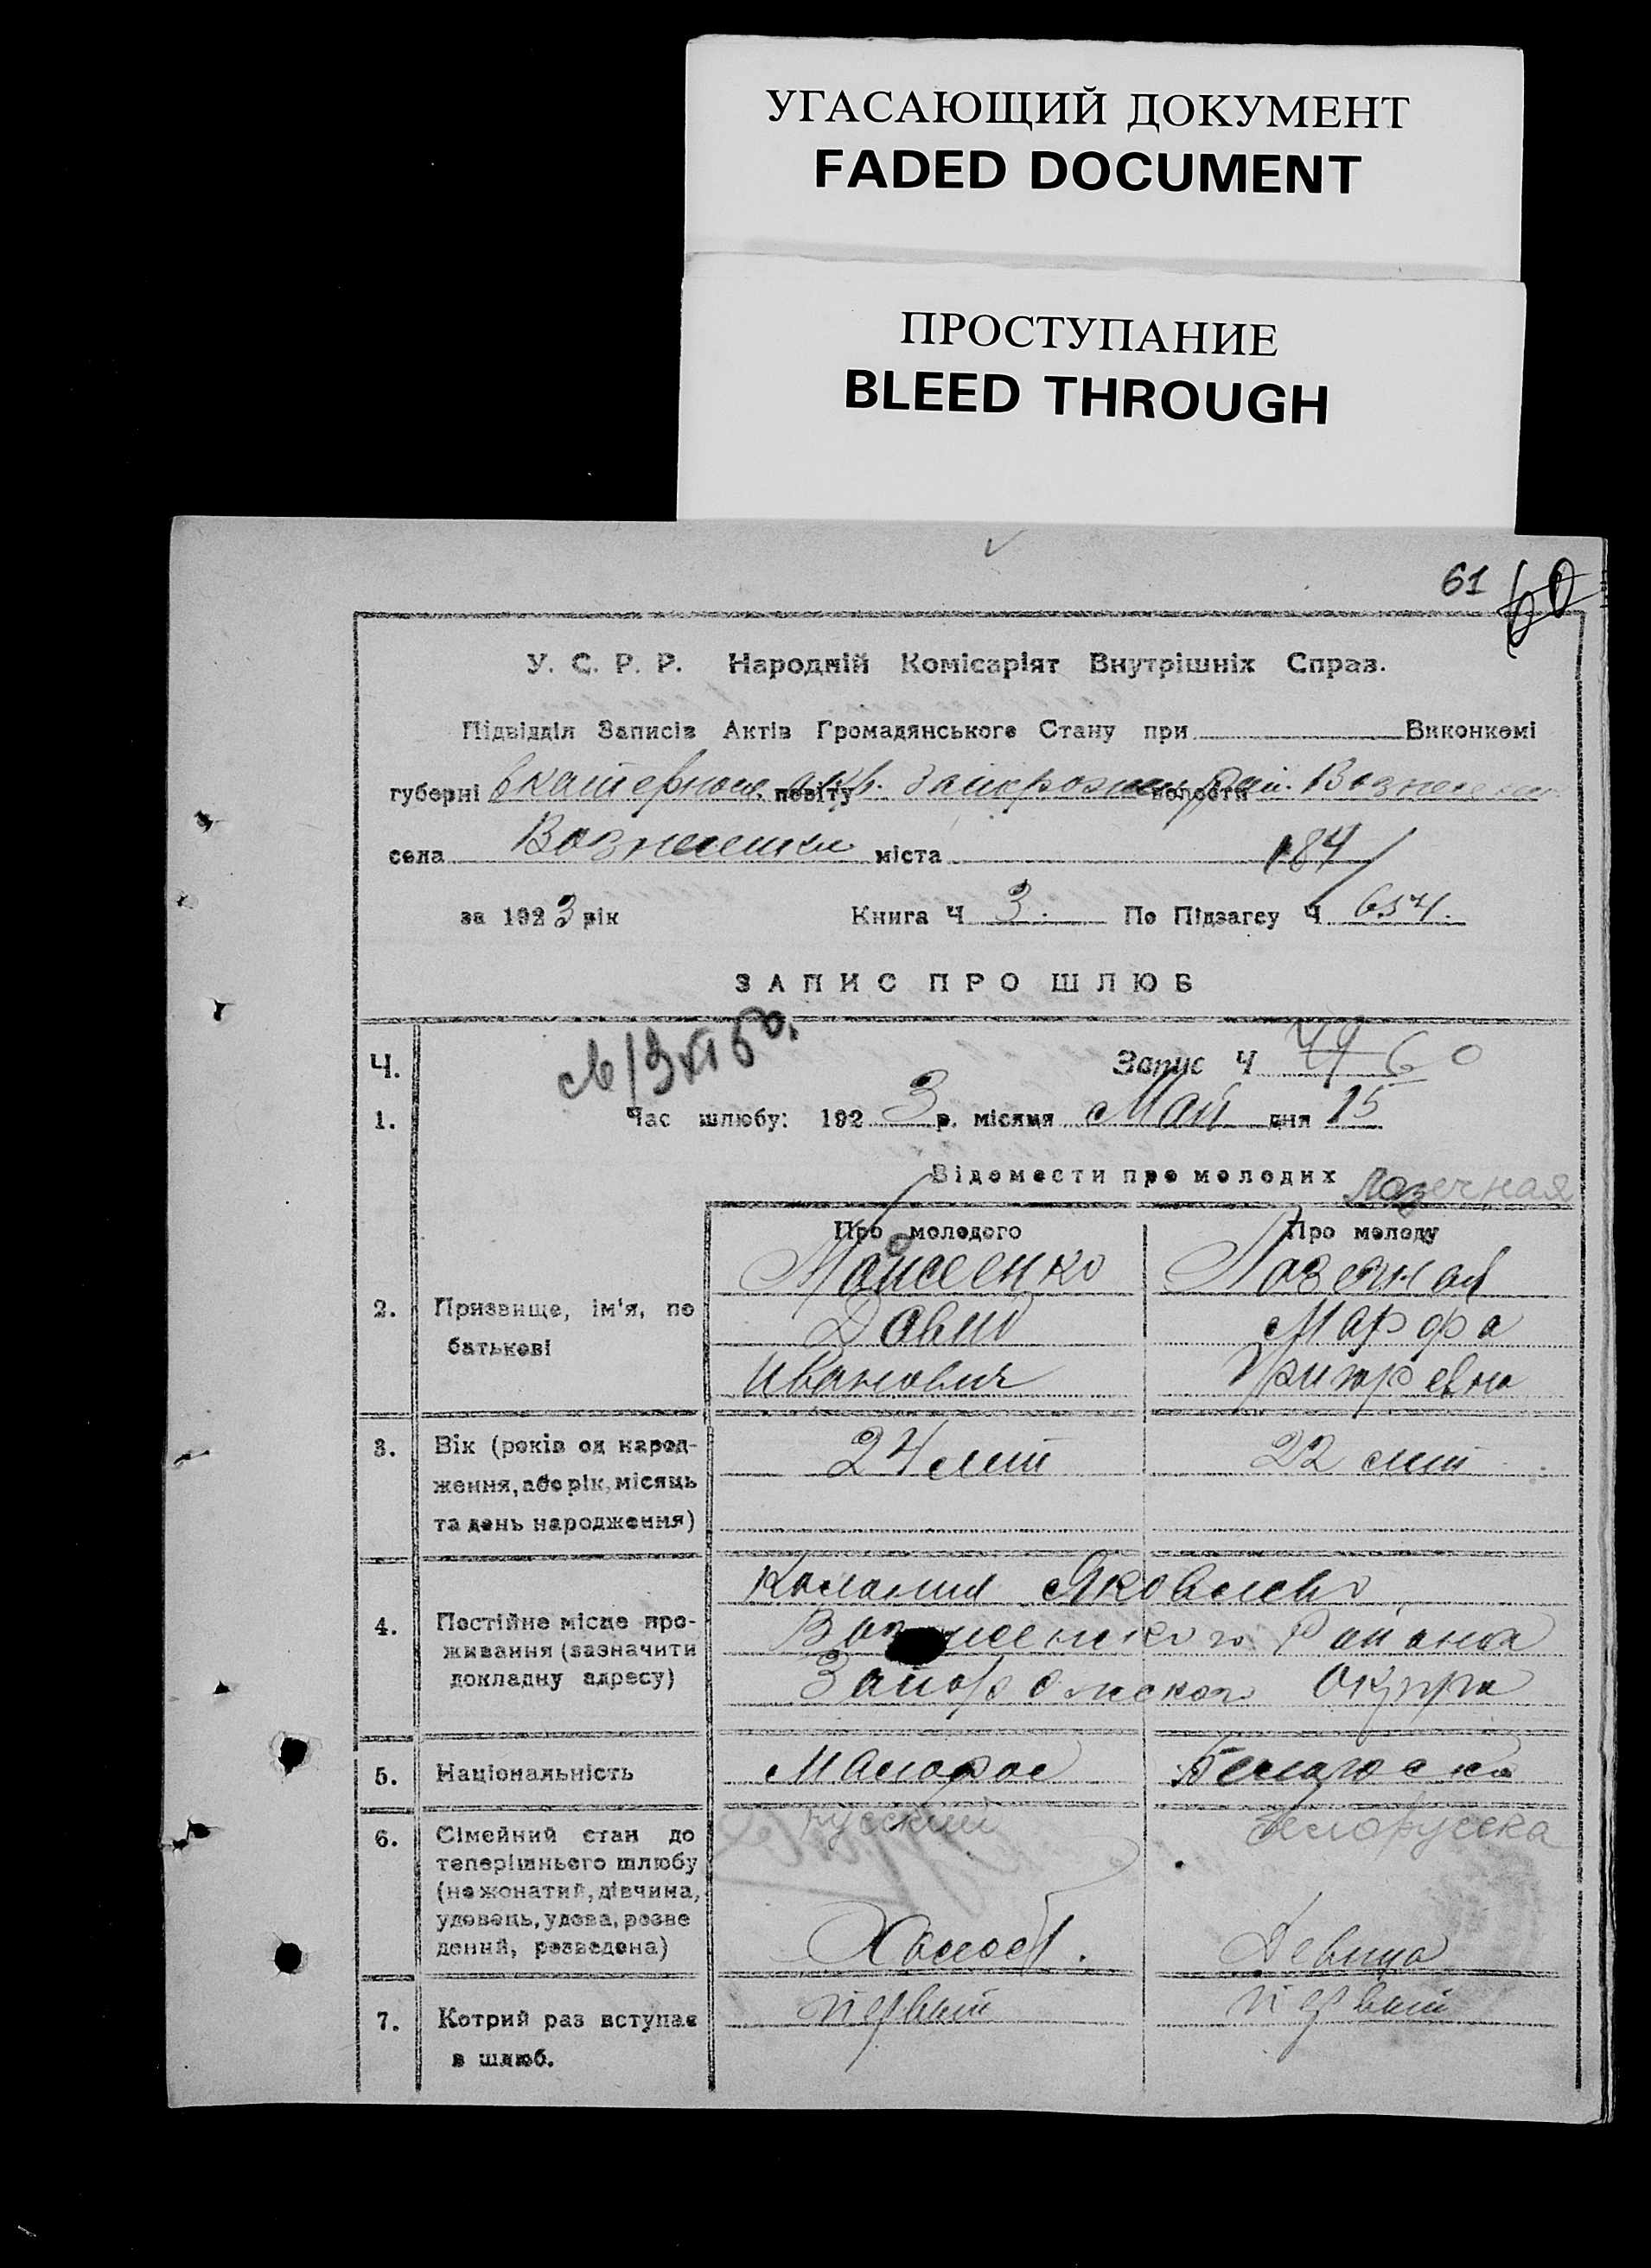 УГАСАЮЩИЙ ДОКУМЕНТ
FADED DOCUMENT
ПРОСТУПАНИЕ
BLEED THROUGH
61 60
У. С. Р. Р. Народній Комісаріят Внутрішніх Справ.
Підвідділ Записів Актів Громадянського Стану при Виконкомі
губерні Екатеринос. повіту окр. волости рай. Вознесенск
села Вознесенка міста 184
за 1923 рік Книга Ч 3. По Підзагсу Ч 654.
ЗАПИС ПРО ШЛЮБ
Ч. Запис Ч 49 60
1. Час шлюбу: 1923 р. місяця Май дня 15
Відомости про молодих Лозечная
Про молодого Про молоду
Мойсеенко Лозечная
2. Призвище, ім'я, по Давид Марфа
батькові Иванович Григоревна
3. Вік (років од народ- 24 лет 22 лет
ження, або рік, місяць
та день народження)
Колония Яковлево
4. Постійне місце про- Вознесенского Района
живання (зазначити
докладну адресу) Запорожского округа
5. Національність Малорос Белороска
русский белоруска
6. Сімейний стан до
теперішнього шлюбу
(не жонатий, дівчина,
удовець, удова, розве
дений, розведена) Холост. Девица
7. Котрий раз вступає первый первый
в шлюб.